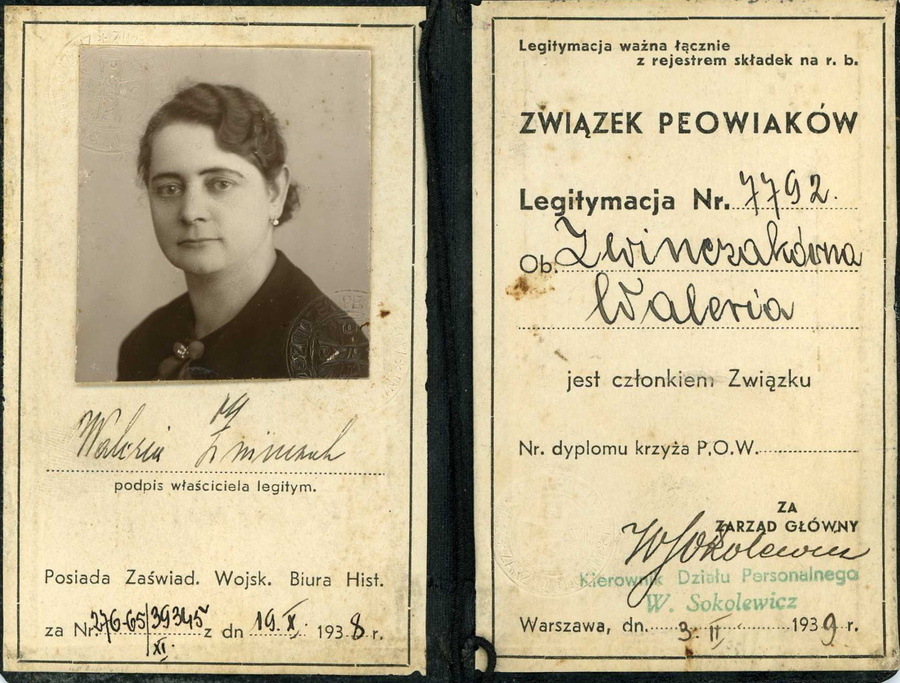 Waleria Zwinczak
podpis właściciela legitym.
Posiada Zaświad. Wojsk. Biura Hist.
za Nr. 276-65/39345 z dn 19.X. 1938 r.
XI.
Legitymacja ważna łącznie
z rejestrem składek na r. b.
ZWIĄZEK PEOWIAKÓW
Legitymacja Nr. 7792.
Ob. Zwinczakówna
Waleria
jest członkiem Związku
Nr. dyplomu krzyża P.O.W.
ZA
ZARZĄD GŁÓWNY
WSokolewicz
Kierownik Działu Personalnego
W. Sokolewicz
Warszawa, dn. 3. II 1939 r.